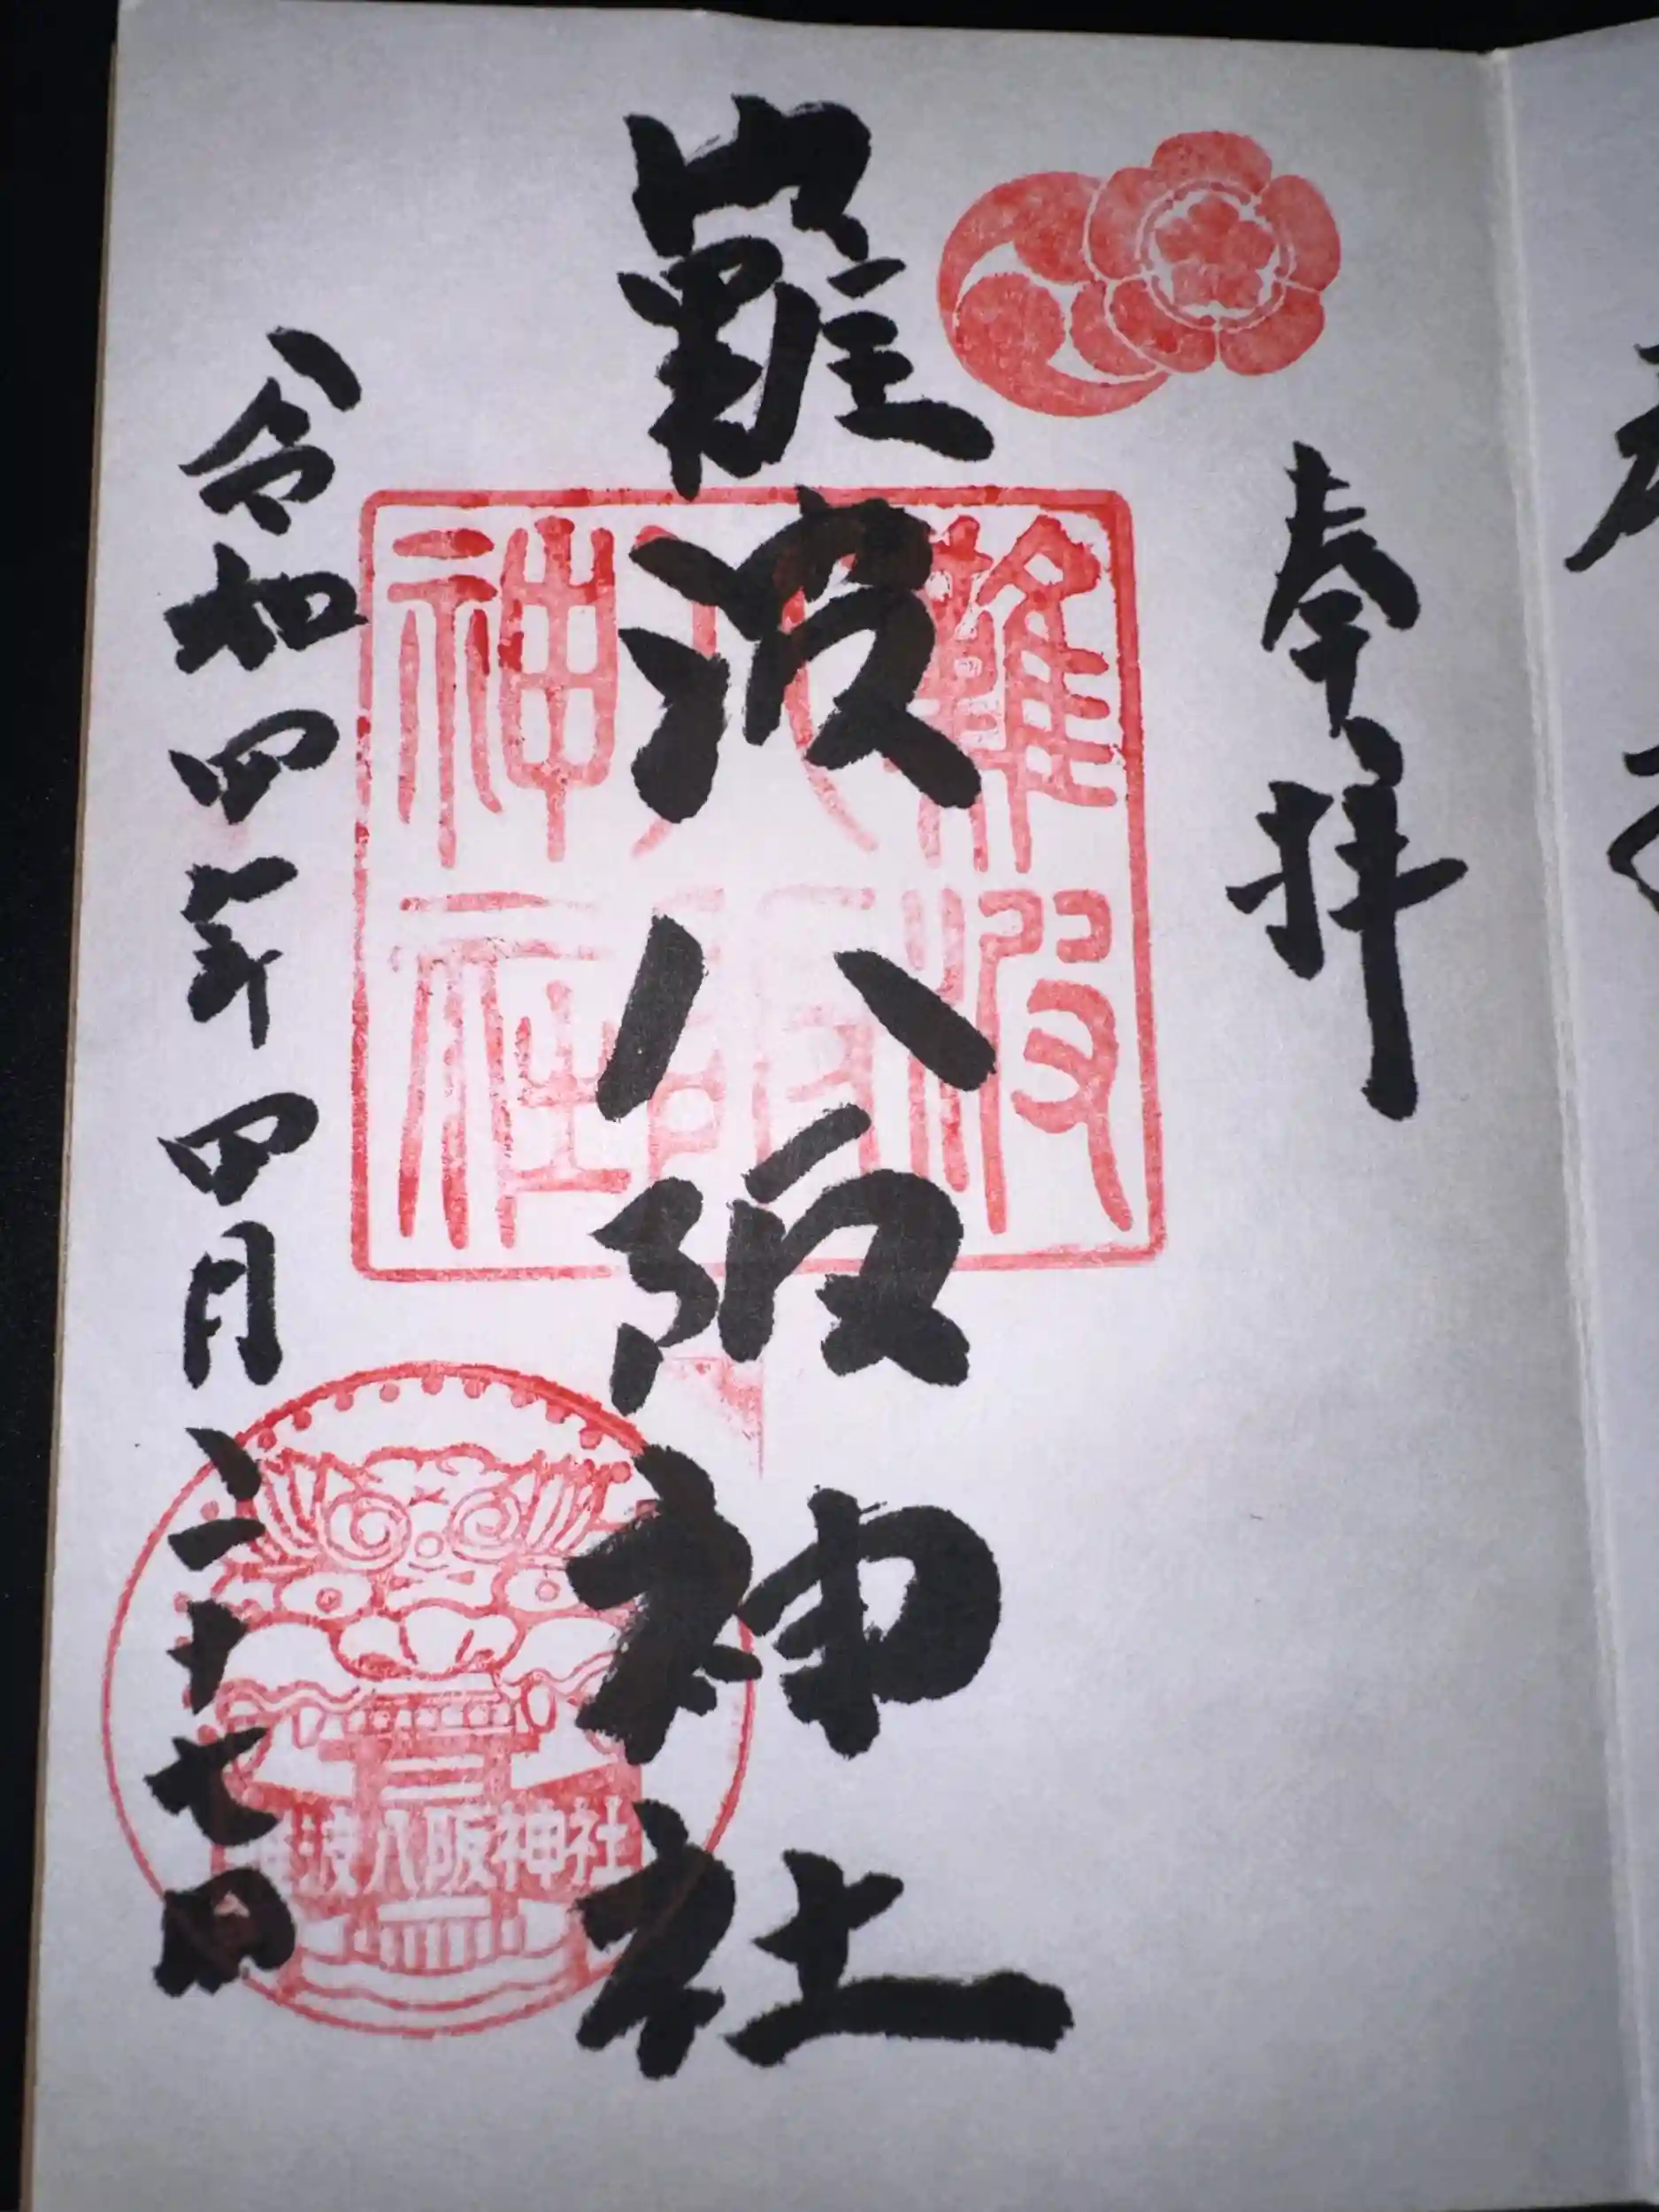 奉拝
難波八阪神社
令和四年四月二十七日
難波
八阪
神社
難波八阪神社